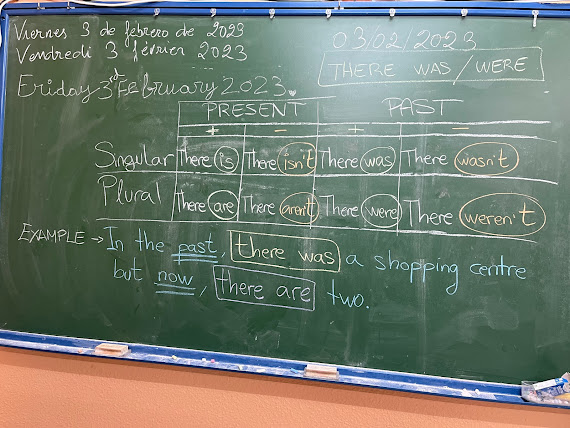 Viernes 3 de febrero de 2023
Vendredi 3 février 2023
Friday 3rd February 2023.
03/02/2023
THERE WAS/WERE
PRESENT PAST
+ - + -
Singular There is There isn't There was There wasn't
Plural There are There aren't There were There weren't
EXAMPLE → In the past, there was a shopping centre
but now, there are two.